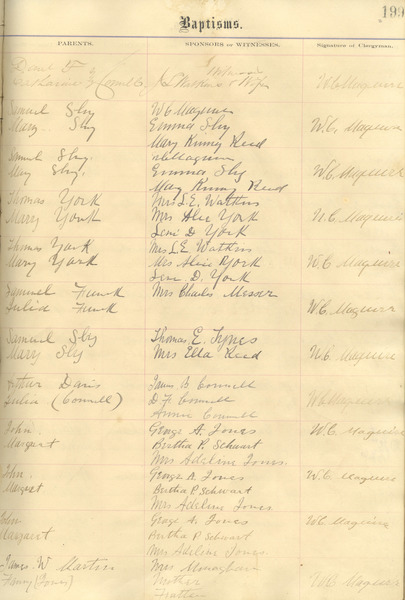 199
Baptisms.
PARENTS. SPONSORS OR WITNESSES. Signature of Clergyman.
Daniel F W C Maguire
& Wife
Samuel Sly W C Maguire
Mary Sly Emma Sly W.C. Maguire
Mary Kinney Reed
Samuel Sly. W C Maguire
Mary Sly. Emma Sly W.C. Maguire
Mary Kinney Reed
Thomas York Mrs L.E. Watkins
Mary York Mrs Alice York W.C. Maguire
Leni D York
Thomas York Mrs L.E Watkins
Mary York Mrs Alice York W.C Maguire
Leni D. York
Samuel Funk Mrs Charles Messer
Julia Funk W.C. Maguire
Samuel Sly Thomas E. Tynes
Mary Sly Mrs Ella Reed W.C Maguire
Arthur Davis James B Connell
Julia (Connell) D F Connell W C Maguire
Annie Connell
John George A. Jones W C Maguire
Margaret Bertha P. Schwart
Mrs Adeline Jones.
John. George A. Jones W.C Maguire
Margaret Bertha P. Schwart
Mrs Adeline Jones
John George A. Jones W.C Maguire
Margaret Bertha P Schwart
Mrs Adeline Jones.
James W Martin Mrs Monaghan
(Jones) Mother W C Maguire